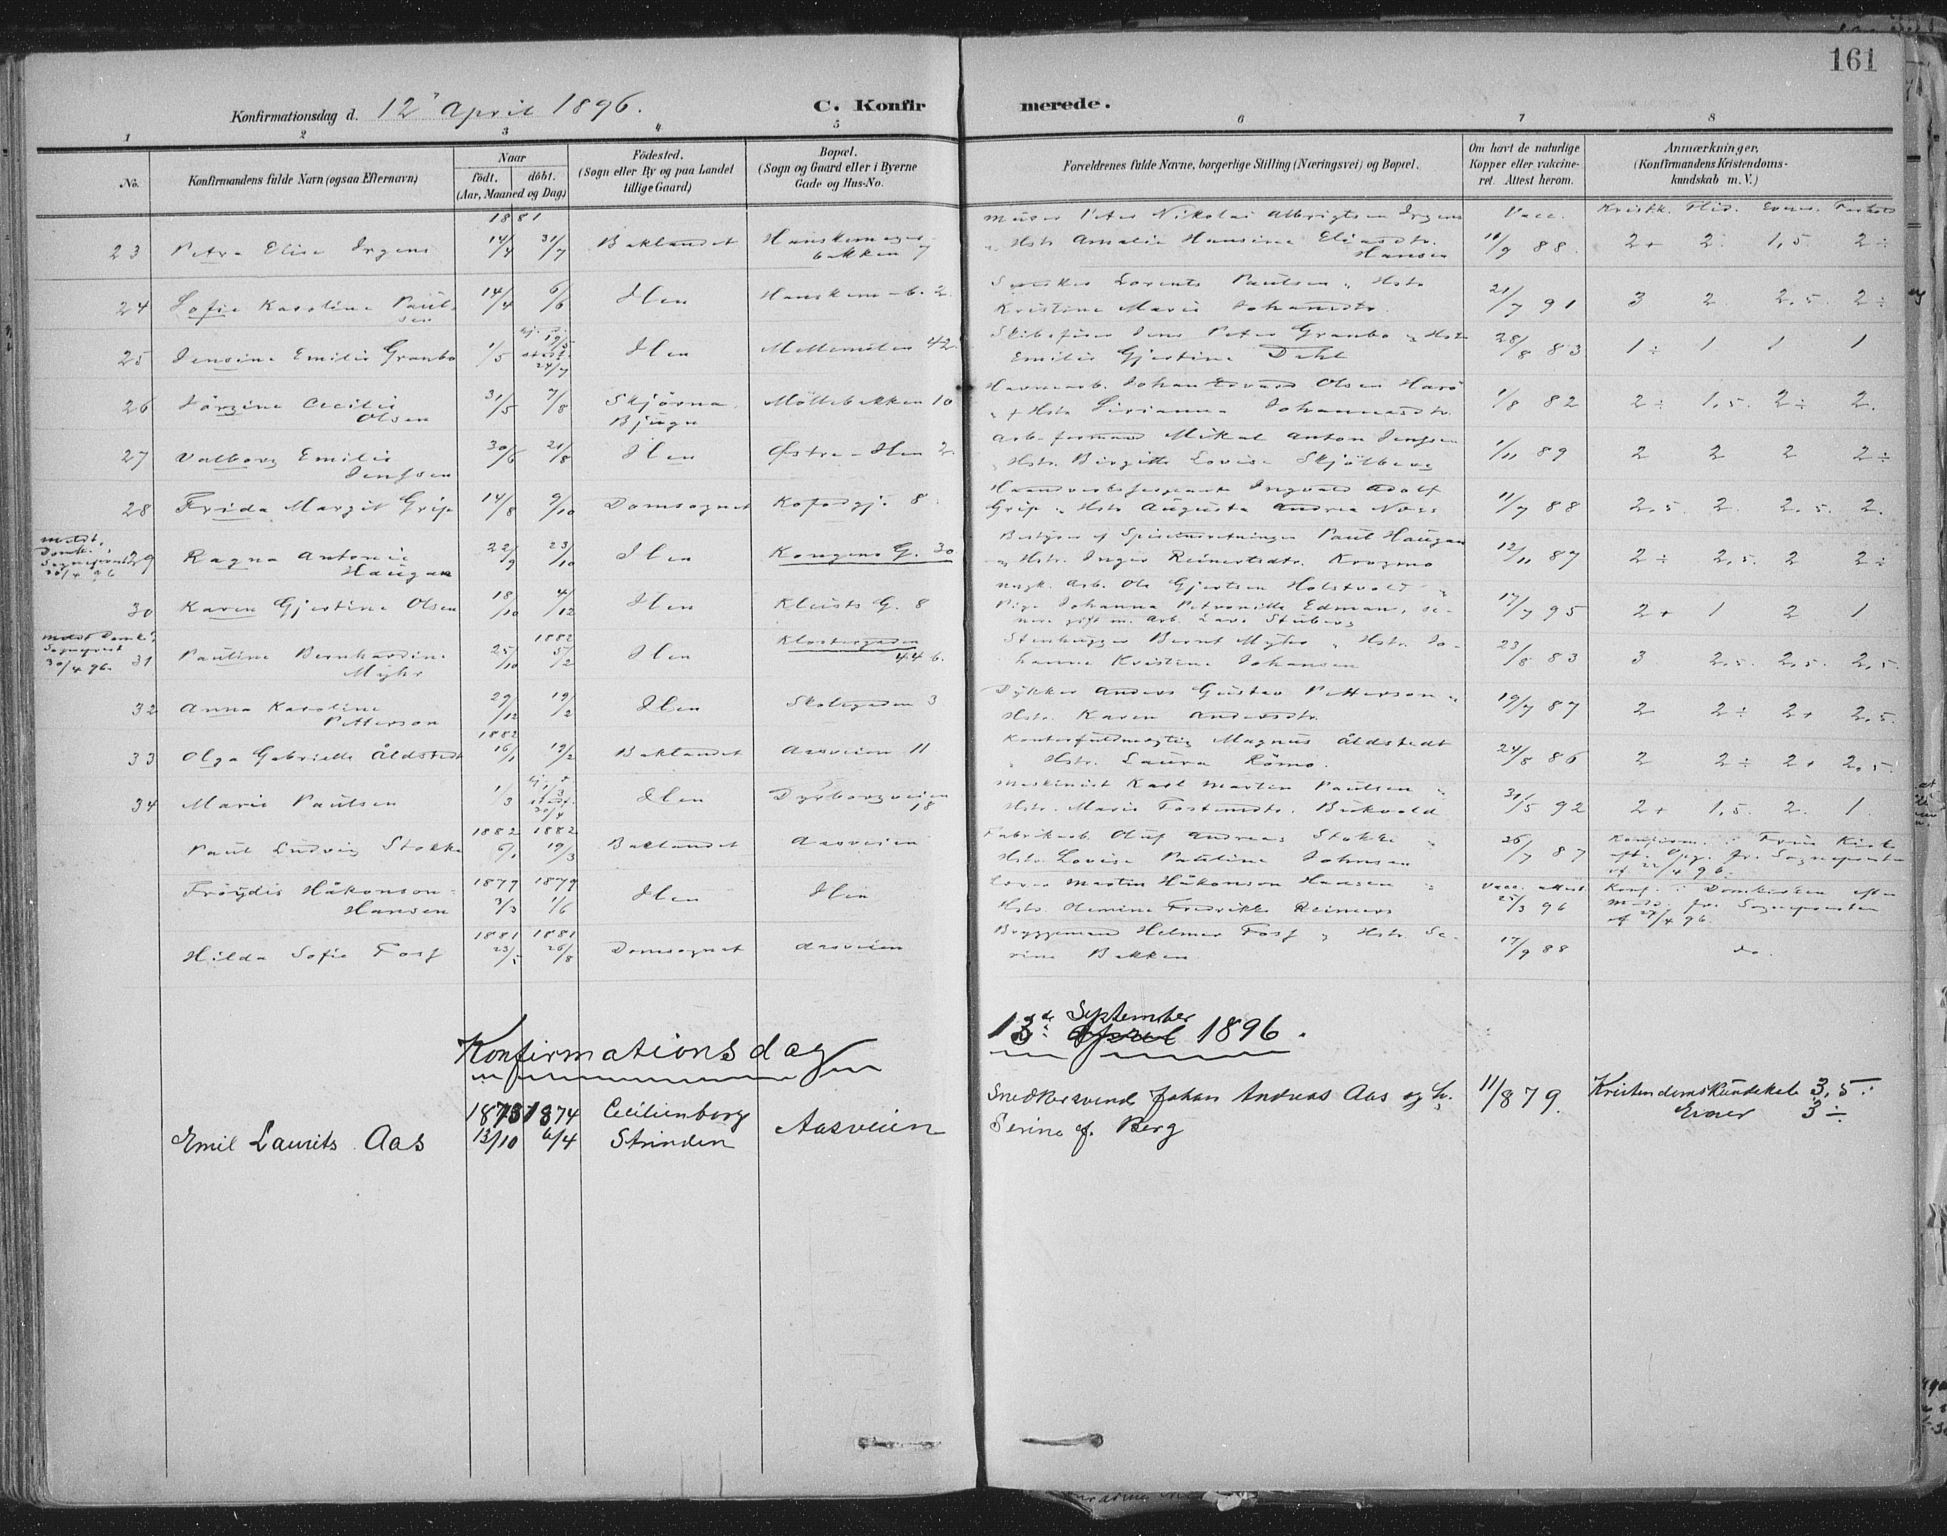 161
Konfirmationsdag d. 12 April 1896.
C. Konfirmerede.
1 2 3 4 5 6 7 8
No.
Konfirmandens fulde Navn (ogsaa Efternavn)
Naar
födt. döbt.
(Aar, Maaned og Dag)
Födested.
(Sogn eller By og paa Landet
tillige Gaard)
Bopæl.
(Sogn og Gaard eller i Byerne
Gade og Hus-No.
Forældrenes fulde Navne, borgerlige Stilling (Næringsvei) og Bopæl.
Om havt de naturlige
Kopper eller vakcine-
ret. Attest herom.
Anmærkninger,
(Konfirmandens Kristendoms-
kundskab m. V.)
1881
Murer Peter Nikolai Albrigtsen Irgens Vacc. Kristk. Flid. Evner. Forhold
23 Petra Elise Irgens 14/4 31/7 Baklandet Hanskemager-
bakken 7
Hstr. Amalie Hansine Eliasdtr.
Hansen
16/9 88. 2+ 2 1,5 2÷
24 Sofie Karoline Paul-
sen
14/4 6/6 Ilen Hanskem-b. 2
Lorents Paulsen Hstr.
Kristine Marie Johansdtr.
21/7 91 3 2 2,5. 2÷
25 Jensine Emilie Granbo 1/5 hj. d. 19/5 24/7 Ilen Mellemilen 42.
Skibsfører Jens Peter Granbo Hstr.
Emilie Gjertine Dahl
28/8 83 1÷ 1 1 1
26 Jörgine Cecilie
Olsen
31/5 7/8 Skjörna
Bjugn
Möllebakken 10
Havnearb. Johan Edvard Olsen
Hstr. Johannesdtr.
1/8 82 2÷ 1,5. 2÷ 2.
27 Valborg Emilie
Jenssen
30/6 21/8 Ilen Østre-Ilen 2.
Arb.formand Mikal Anton Jenssen
Hstr. Birgitte Lovise Skjölberg
1/11 89 2 2 2 2÷
28 Frida Margit Grip 14/8 9/10 Domsognet Kofodgj. 8
Ingvald Adolf
Grip Hstr. Augusta Andrea Næss
11/7 88 2,5. 2. 2,5. 2.
meldt.
Domk.
Sognepræst
30/4 96
29 Ragna Antonie
Haugan
22/9 23/10 Ilen Kongens G. 30
Bestyrer af Paul Haugan
Hstr. Inger Reinertsdtr. Krogmo
12/11 87 2÷ 2,5. 2 2÷
30 Karen Gjertine Olsen 18/10 4/12 Ilen Kleists G. 8
ungk. Arb. Ole Gjertsen Holstvold
Pige Johanna Petronille Edman, se-
nere gift m. Arb. Lars Stuberg
17/7 95 2+ 1 2 1
meldt Domk.
Sognepræst
30/4 96.
31 Pauline Bernhardine
Myhr
25/10 1882 5/2 Ilen Klostergaden
44 b.
Stenhugger Bernt Myhr Hstr. Jo-
hanne Kristine Johansen
23/8 83 3 2,5. 2,5. 2,5
32 Anna Karoline
Petterson
29/12 19/2 Ilen Skolegaden 3
Dykker Anders Gustav Petterson
Hstr. Karen Andersdtr.
19/7 87 2 2÷ 2+ 2,5.
33 Olga Gabrielle Åldstedt 1882 16/1 19/2 Baklandet Aasveien 11
Kontorfuldmægtig Magnus Åldstedt
Hstr. Laura Römo.
24/8 86 2 2÷ 2+ 2,5.
34 Marie Paulsen 1/3 hj. d. 1/3 stadf. 30/4 Ilen Dyrborgveien
18
Maskinist Karl Martin Paulsen
Hstr. Marie Bukvold
31/5 92 2+ 1,5. 2. 1.
Paul Ludvig Stokke 1882 6/1 1882 19/3 Baklandet Aasveien
Fabrikarb. Oluf Andreas Stokke
Hstr. Lovise Pauline Johnsen
26/7 87
Konfirm. i Frue Kirke
eft. Opg. fr. Sognepræsten
af 22/4 96.
Fröydis Håkonson-
Hansen
1879 3/3 1879 1/6 Ilen Ilen
Martin Håkonson Hansen
Hstr. Fredrikke Reiners
Vacc. attest
25/3 96
Konf. i Domkirken efter
Meld. fr. Sognepræsten
af 27/4 96.
Hilda Sofie Foss 1881 23/5 1881 26/8 Domsognet Aasveien
Byggemand Helmer Foss Hstr. Se-
rine Bakken
17/9 88 do.
Konfirmationsdag 13de September April 1896.
Emil Laurits Aas 1873 13/10 1874 6/4 Cecilienborg
Strinden
Aasveien
Snedkersvend Johan Andreas Aas og H.
Serine f. Berg
11/8 79.
Kristendomskundskab 3,5.
Evner 3÷